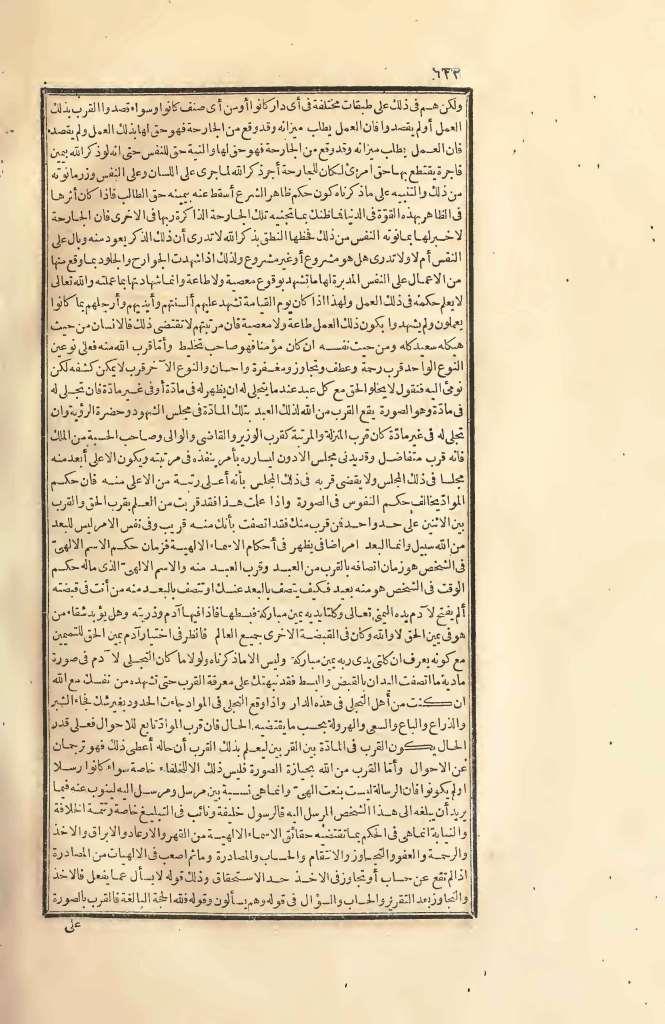 ٦٣٣
ولكن هم فى ذلك على طبقات مختلفة فى أى دار كانوا أومن أى صنف كانوا وسواء قصدوا القرب بذلك
العمل أولم يقصدوا فان العمل يطلب ميزانه وقد وقع من الجارحة فهو حق لها بذلك العمل ولم يقصد
فان العمل يطلب ميزانه وقد وقع من الجارحة فهو حق لها والنية حق للنفس حتى انه لو ذكر الله بيمين
فاجرة يقتطع بها حق امرئ لكان للجارحة أجر ذكر الله لما جرى على اللسان وعلى النفس وزر ما نوته
من ذلك والتنبيه على ما ذكرناه كون حكم ظاهر الشرع أسقط عنه بيمينه حق الطالب فاذا كان أثرها
فى الظاهر بهذه القوة فى الدنيا فما ظنك بما تجنيه تلك الجارحة الذاكرة ربها فى الاخرى فان الجارحة
لا خبر لها بما نوته النفس من ذلك فحظها النطق بذكر الله لا تدرى أن ذلك الذكر يعود منه وبال على
النفس أم لا ولا تدرى هل هو مشروع أو غير مشروع ولذلك اذا شهدت الجوارح والجلود بما وقع منها
من الاعمال على النفس المدبرة لها ما تشهد بوقوع معصية ولا طاعة وانما شهادتها بما عملته والله تعالى
لا يعلم حكمه فى ذلك العمل ولهذا اذا كان يوم القيامة تشهد عليهم ألسنتهم وأيديهم وأرجلهم بما كانوا
يعملون ولم يشهدوا بكون ذلك العمل طاعة ولا معصية فان مرتبتهم لا تقتضى ذلك فالانسان من حيث
هيكله سعيد كله ومن حيث نفسه ان كان مؤمنا فهو صاحب تخليط وأما قرب الله منه فعلى نوعين
النوع الواحد قرب رحمة وعطف وتجاوز ومغفرة واحسان والنوع الآخر قرب لا يمكن كشفه لكن
نومئ اليه فنقول لا يخلو الحق مع كل عبد عند ما يتجلى له ان يظهر له فى مادّة أو فى غير مادّة فان تجلى له
فى مادّة وهو الصورة يقع القرب من الله لذلك العبد بتلك المادّة فى مجلس الشهود وحضرة الرؤية وان
تجلى له فى غير مادّة كان قرب المنزلة والمرتبة كقرب الوزير والقاضى والوالى وصاحب الحسبة من الملك
فانه قرب متفاضل وقد يدنى مجلس الادون ليسارره بأمر ينفذه فى مرتبته ويكون الاعلى أبعد منه
مجلسا فى ذلك المجلس ولا يقضى قربه فى ذلك المجلس بأنه أعلى رتبة من الاعلى منه فان حكم
الموادّ يخالف حكم النفوس فى الصورة واذا علمت هذا فقد قربت من العلم بقرب الحق والقرب
بين الاثنين على حد واحد فمن قرب منك فقد اتصفت بأنك منه قريب وفى نفس الامر ليس للبعد
من الله سبيل وانما البعد أمر اضافى يظهر فى أحكام الاسماء الالهية فزمان حكم الاسم الالهىّ
فى الشخص هو زمان اتصافه بالقرب من العبد وقرب العبد منه والاسم الالهىّ الذى ماله حكم
الوقت فى الشخص هو منه بعيد فكيف يتصف بالبعد عنك أو تتصف بالبعد منه من أنت فى قبضته
ألم يفتح لآدم يده اليمنى تعالى وكلتا يديه يمين مباركة فبسطها فاذا فيها آدم وذريته وهل يؤبد شقاء من
هو فى يمين الحق لا والله وكان فى القبضة الاخرى جميع العالم فانظر فى اختيار آدم يمين الحق للتمييز
مع كونه يعرف ان كلتى يدى ربه يمين مباركة وليس الا ما ذكرناه ولولا ما كان التجلى لآدم فى صورة
مادية ما اتصفت اليدان بالقبض والبسط فقد نبهتك على معرفة القرب حتى تشهده من نفسك مع الله
ان كنت من أهل التجلى فى هذه الدار واذا وقع التجلى فى الموادّ جاءت الحدود بغير شك فجاء الشبر
والذراع والباع والسعى والهرولة بحسب ما يقتضيه الحال فان قرب الموادّ تابع للاحوال فعلى قدر
الحال يكون القرب فى المادّة بين القربين ليعلم بذلك القرب أن حاله أعطى ذلك فهو ترجمان
عن الاحوال وأمّا القرب من الله بحيازة الصورة فليس ذلك الا للخلفاء خاصة سواء كانوا رسلا
أولم يكونوا فان الرسالة ليست بنعت الهىّ وانما هى نسبة بين مرسل ومرسل اليه لينوب عنه فيما
يريد أن يبلغه الى هذا الشخص المرسل اليه فالرسول خليفة ونائب فى التبليغ خاصة وتتمة الخلافة
والنيابة انما هى فى الحكم بما تقتضيه حقائق الاسماء الالهية من القهر والارعاد والابراق والاخذ
والرحمة والعفو والتجاوز والانتقام والحساب والمصادرة وما ثم أصعب فى الالهيات من المصادرة
اذا لم تقع عن حساب أو تجاوز فى الاخذ حد الاستحقاق وذلك قوله لا يسأل عما يفعل فالاخذ
والتجاوز بعد التقرير والحساب والسؤال فى قوله وهم يسألون وقوله فلله الحجة البالغة فالقرب بالصورة
على